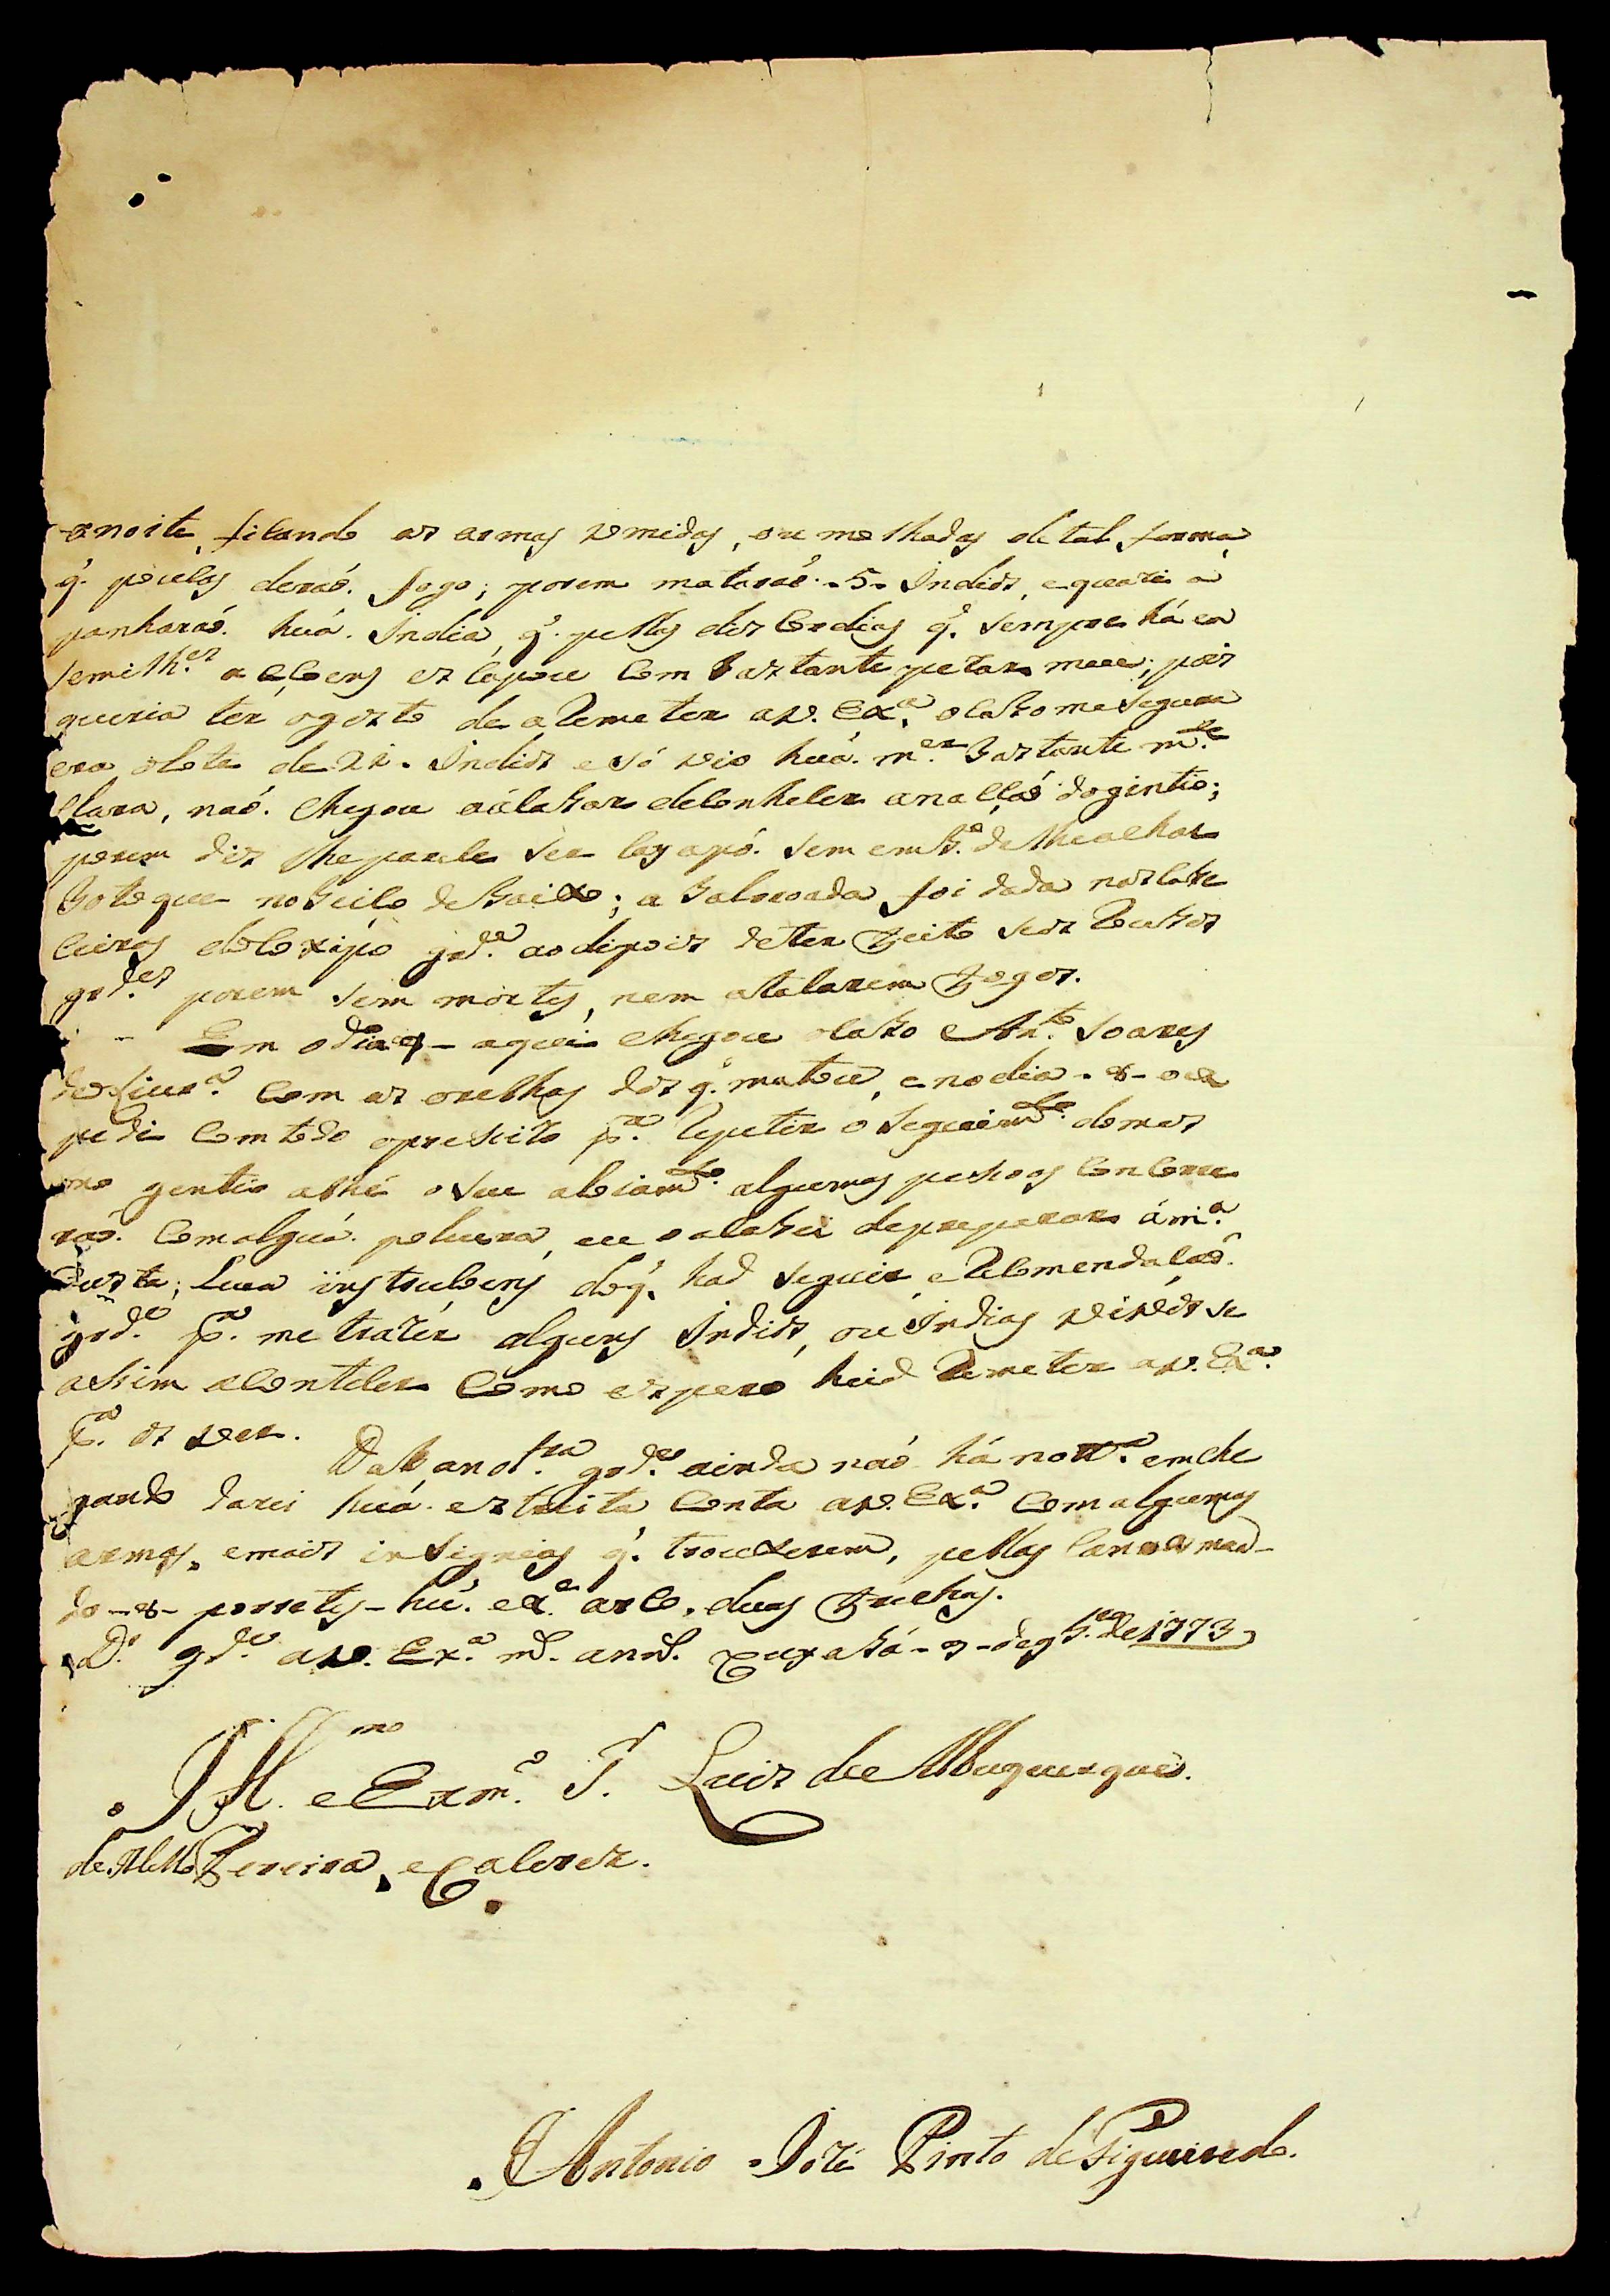 anoite, ficando as armas vmidas, ou molhadas de tal forma
q̃. poucas deraõ. fogo; porem mataraõ. - 5 - Indios, e quazi a
panharaõ. huá. India, q̃. pellas discordias q̃. sempre há em
semilh.es accoens escapou com bastante pezar meu; pois
queria ter ogosto de a Remeter a V. Ex.ª o cabo me segura
era olote de 21. Indios e só vio huá. m.er bastante m.te
clara, naõ. chegou aacabar deConhecer anaçaõ dogintio;
porem diz lhe parece ser cayapó. sem emb.º de lhe achar
botoque nobeiço debaixo; a abalroada foi dada nas cabe
ceiras do Coxipó grd.e ao depois deter feito seos Roubos
grd.es porem sem mortes, nem atacarem fogos.
Em odia aqui chegou ocabo Ant.º Soares
de Siur.ª Com as orelhas dos q̃. matou, e nodia - 8 - o ex
pedi Com todo opreciso p.ª Repetir o seguim.to domes
mo gentio athé o seu alojam.to algumas pessoas Concorre
raõ. Comalguá. polvora, eu oacabei depreparar ám.ª
Custa; Leva instrucoens doq̃. haõ seguir, e Recomendaçaõ.
grd.e p.ª me trazer alguns Indios, ou Indias vivos se
assim aContecer Como espero heid Remeter a V. Ex.ª
p.ª os ver.
Da band.ra grd.e ainda naõ há not.ª emche
gando darei huá. estreita Conta a V. Ex.ª Comalgumas
armas, emais insignias q̃. trouxerem, pellas Canoas man-
do - 8 - porretes - hú. arco, duas frechas.
D.s gd.e a V. Ex.ª m.s ann.s Cuyabá - 9 - de 1773
Ill.mo e Exm.º S.r Luis de Albuquerque.
de Mello Pereira, e Caceres.
Antonio Jozé Pinto de Figueiredo.